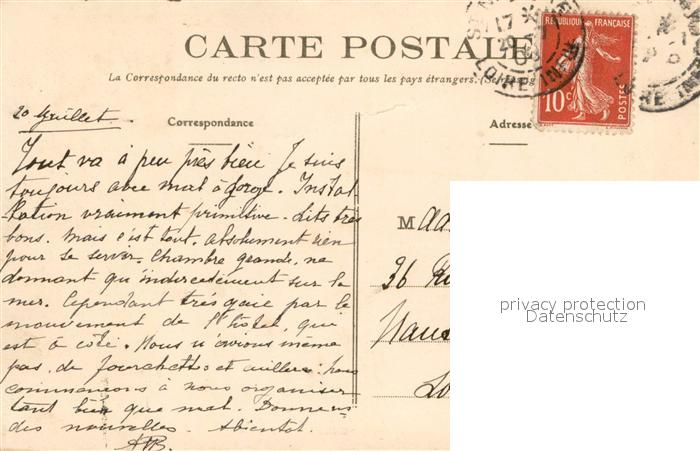 CARTE POSTALE
La Correspondance du recto n'est pas acceptée par tous les pays étrangers. (Se
RÉPUBLIQUE FRANÇAISE
10c
POSTES
17
LOIRE INF
LOIRE INF
20 Juillet.
Correspondance
Tout va à peu près bien Je suis
toujours avec mal à gorge. Instal
lation vraiment primitive. Lits très
bons. Mais c'est tout. Absolument rien
pour se servir. Chambre grande, ne
donnant qu'indirectement sur la
mer. Cependant très gaie par le
mouvement de l'hôtel, qui
est à côté. Nous n'avions même
pas de fourchettes et cuillers. Nous
commençons à nous organiser
tant bien que mal. Donnez
des nouvelles. Abientot.
Adresse
M
36
privacy protection
Datenschutz